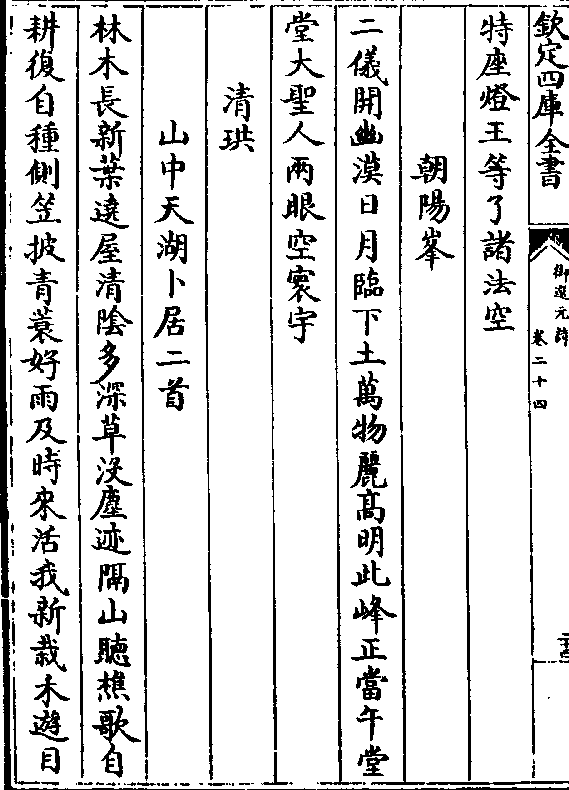 欽定四庫全書
御選元詩
卷二十四
特座燈王等了諸法空
朝陽峯
二儀開幽漠日月臨下土萬物麗髙明此峰正當午堂
堂大聖人兩眼空寰宇
清珙
山中天湖卜居二首
林木長新葉遶屋清陰多深草沒塵迹隔山聽樵歌自
耕復自種側笠披青蓑好雨及時來活我新栽禾遊目